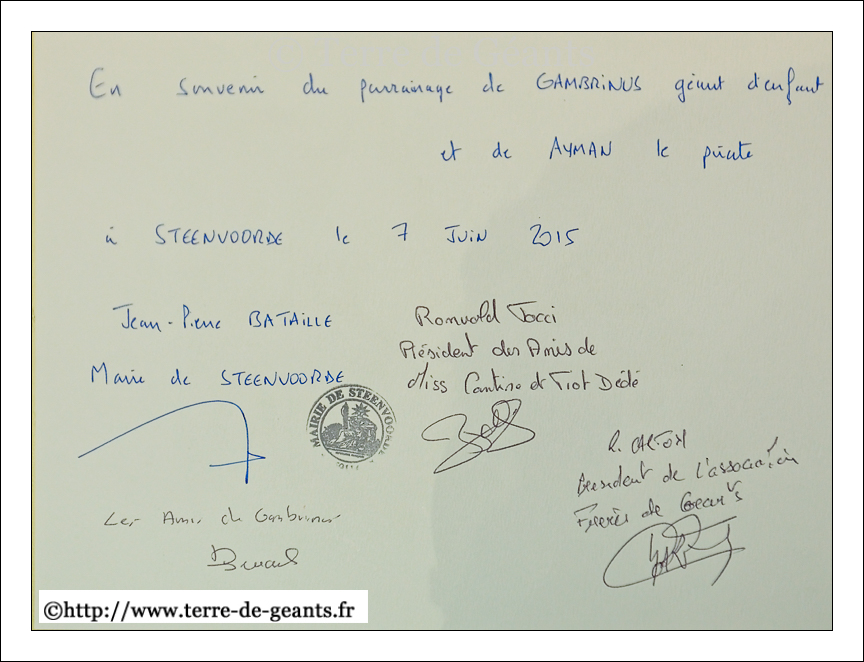 En souvenir du parrainage de GAMBRINUS géant d'enfant
et de AYMAN le pirate
à STEENVOORDE le 7 Juin 2015
Jean-Pierre BATAILLE
Maire de STEENVOORDE
Romuald Tocci
Président des Amis de
Miss Cantine et Tiot Dédé
MAIRIE DE STEENVOORDE
R.
Président de l'association
de Géants
Les Amis de Gambrinus
©http://www.terre-de-geants.fr